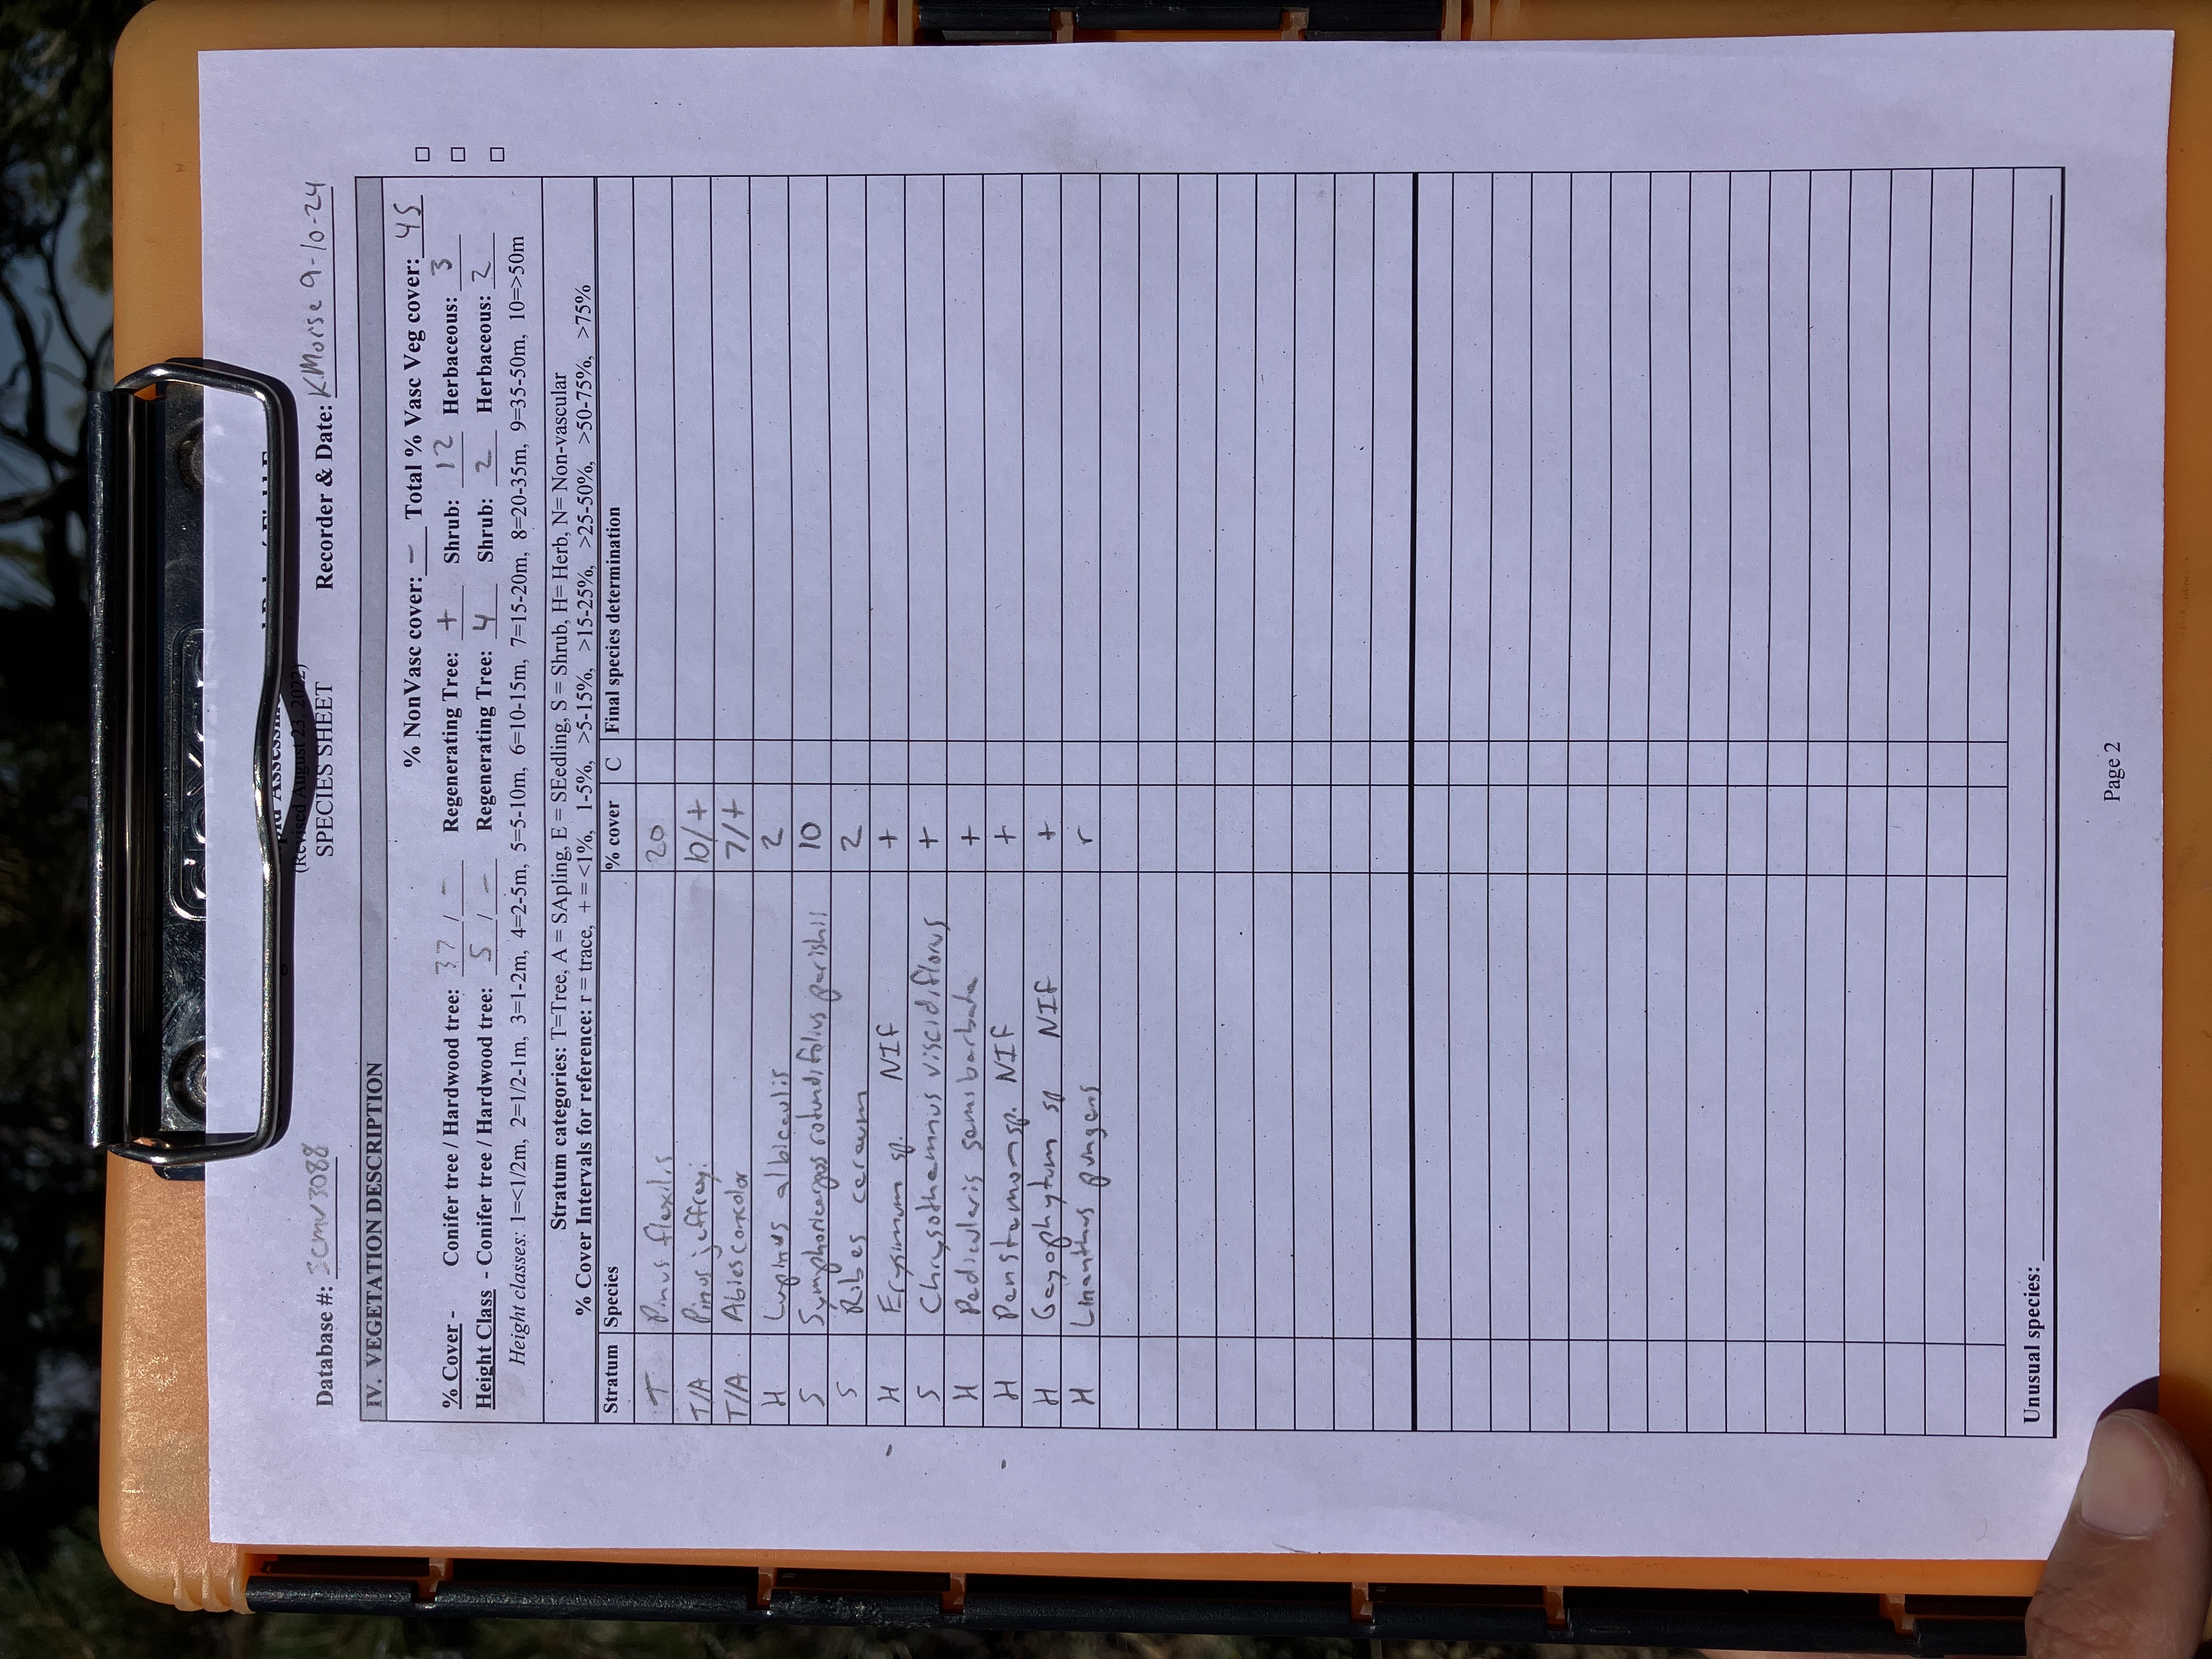 (Revised August 23, 2022)
SPECIES SHEET
Database #: 3cmv3088 Recorder & Date: K.Morse 9-10-24
IV. VEGETATION DESCRIPTION
% NonVasc cover: - Total % Vasc Veg cover: 45 □
% Cover - Conifer tree / Hardwood tree: 37 / - Regenerating Tree: + Shrub: 12 Herbaceous: 3 □
Height Class - Conifer tree / Hardwood tree: 5 / - Regenerating Tree: 4 Shrub: 2 Herbaceous: 2 □
Height classes: 1=<1/2m, 2=1/2-1m, 3=1-2m, 4=2-5m, 5=5-10m, 6=10-15m, 7=15-20m, 8=20-35m, 9=35-50m, 10=>50m
Stratum categories: T=Tree, A = SApling, E = SEedling, S = Shrub, H= Herb, N= Non-vascular
% Cover Intervals for reference: r = trace, + = <1%, 1-5%, >5-15%, >15-25%, >25-50%, >50-75%, >75%
Stratum Species % cover C Final species determination
T Pinus flexilis 20
T/A Pinus jeffreyi 10/+
T/A Abies concolor 7/+
H Lupinus albicaulis 2
S Symphoricarpos rotundifolius parishii 10
S Ribes cereum 2
H Erysimum sp. NIF +
S Chrysothamnus viscidiflorus +
H Pedicularis semibarbata +
H Penstemon sp. NIF +
H Gayophytum sp NIF +
H Linanthus pungens r
Unusual species:
Page 2